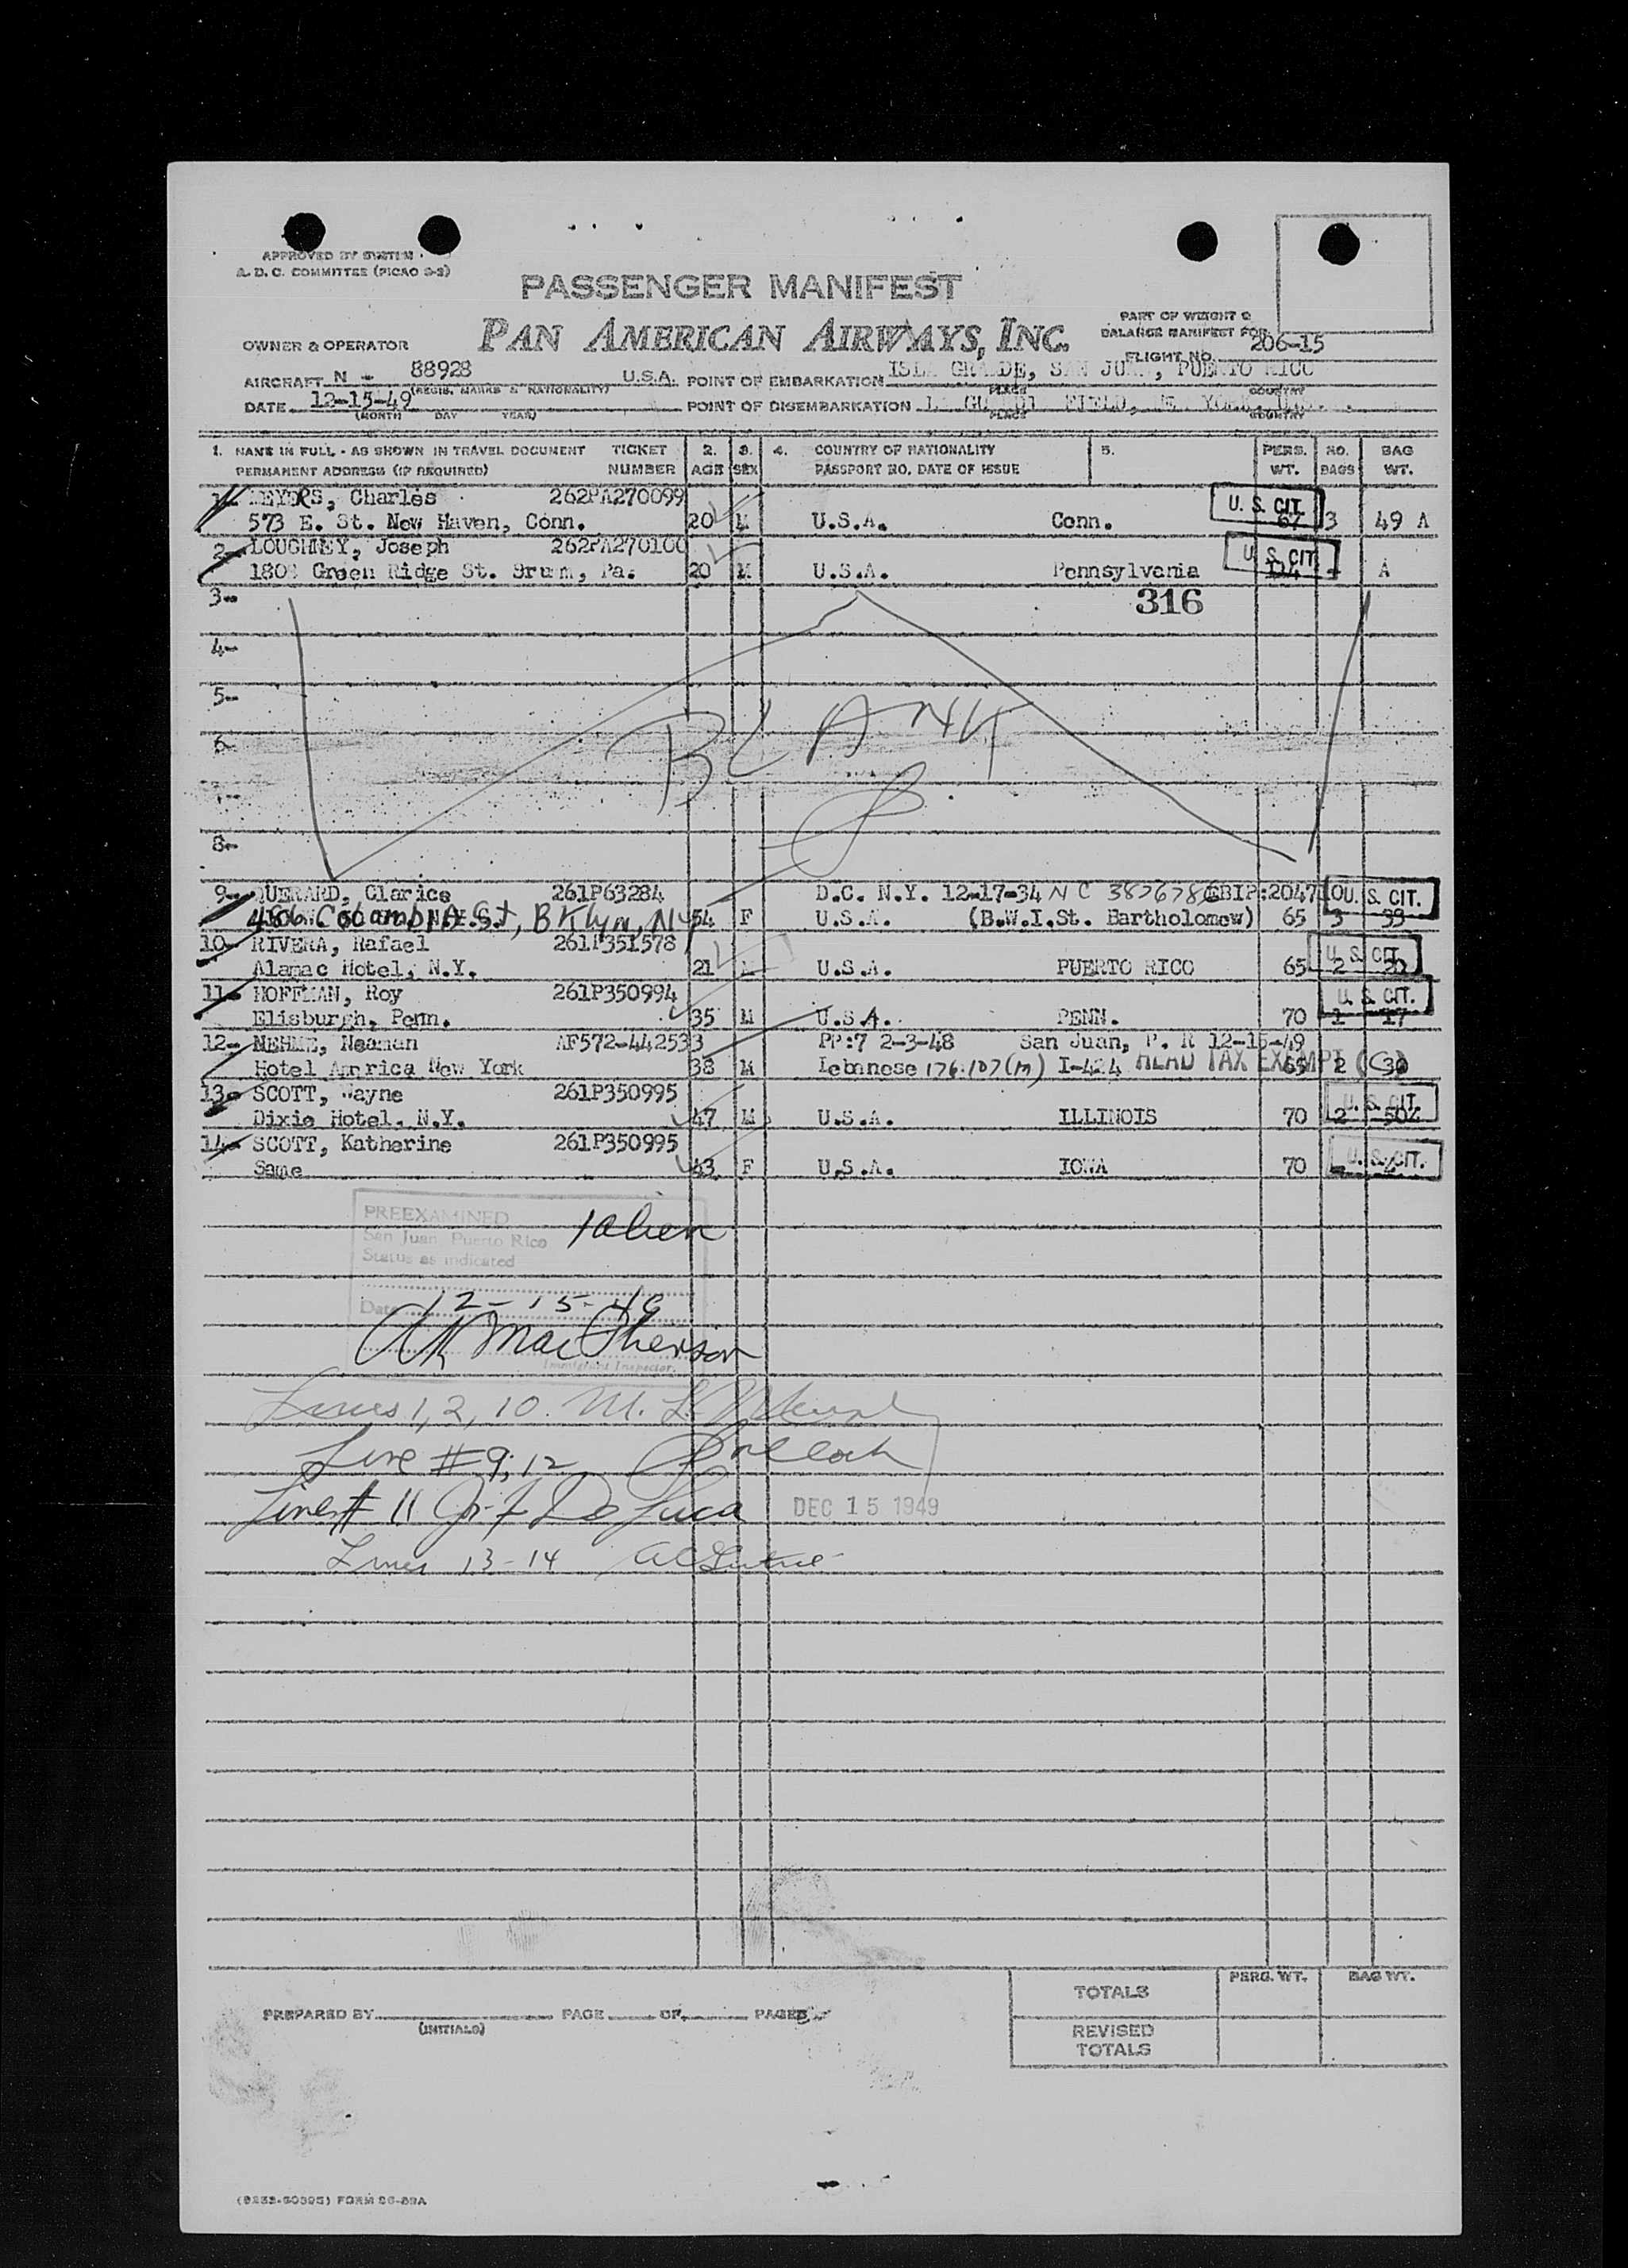 APPROVED BY SYSTEM
A. D. C. COMMITTEE (PICAO 9-2)
PASSENGER MANIFEST
PAN AMERICAN AIRWAYS, INC.
PART OF WEIGHT &
BALANCE MANIFEST FOR
FLIGHT NO. 206-15
OWNER & OPERATOR
AIRCRAFT N - 88928 U.S.A. POINT OF EMBARKATION ISLA GRANDE, SAN JUAN, PUERTO RICO
(REGIS. MARKS & NATIONALITY) PLACE COUNTRY
DATE 12-15-49 POINT OF DISEMBARKATION LA GUARDI FIELD, NEW YORK, U.S.A.
(MONTH DAY YEAR) PLACE COUNTRY
1. NAME IN FULL - AS SHOWN IN TRAVEL DOCUMENT TICKET 2. 3. 4. COUNTRY OF NATIONALITY 5. PERS. NO. BAG
PERMANENT ADDRESS (IF REQUIRED) NUMBER AGE SEX PASSPORT NO. DATE OF ISSUE WT. BAGS WT.
1- MEYERS, Charles 262PA270099 U. S. CIT.
573 E. St. New Haven, Conn. 20 M U.S.A. Conn. 67 3 49 A
2- LOUGHNEY, Joseph 262PA270100 U. S. CIT.
Green Ridge St. Pa. 20 M U.S.A. Pennsylvania - A
3- 316
4-
5-
6-
BLANK
7-
8-
9- QUERARD, Clarice 261P63284 D.C. N.Y. 12-17-34 NC U. S. CIT.
486 Columbia St, BKlyn, NY 54 F U.S.A. (B.W.I.St. Bartholomew) 65 3 39
10- RIVERA, Rafael 261P351578 U. S. CIT.
Alamac Hotel, N.Y. 21 M U.S.A. PUERTO RICO 65 2
11- HOFFMAN, Roy 261P350994 U. S. CIT.
Elisburgh, Penn. 35 M U.S.A. PENN. 70 1 17
12- MEHME, Neaman AF572-442533 PP:7 2-3-48 San Juan, P. R 12-15-49
Hotel America New York 38 M Lebanese 176.107(m) I-424 HEAD TAX EXEMPT 65 2
13- SCOTT, Wayne 261P350995 U. S. CIT.
Dixie Hotel, N.Y. 47 M U.S.A. ILLINOIS 70 2
14- SCOTT, Katherine 261P350995 U. S. CIT.
Same 43 F U.S.A. IOWA 70
PREEXAMINED 1 alien
San Juan Puerto Rico
Status as indicated
Date 12-15-49
MacPherson
Immigrant Inspector.
Lines 1, 2, 10. M. L. Murphy
Line #9, 12
Line # 11 De Luca DEC 15 1949
Lines 13-14
TOTALS PERS. WT. BAG WT.
PREPARED BY PAGE OF PAGES
(INITIALS)
REVISED
TOTALS